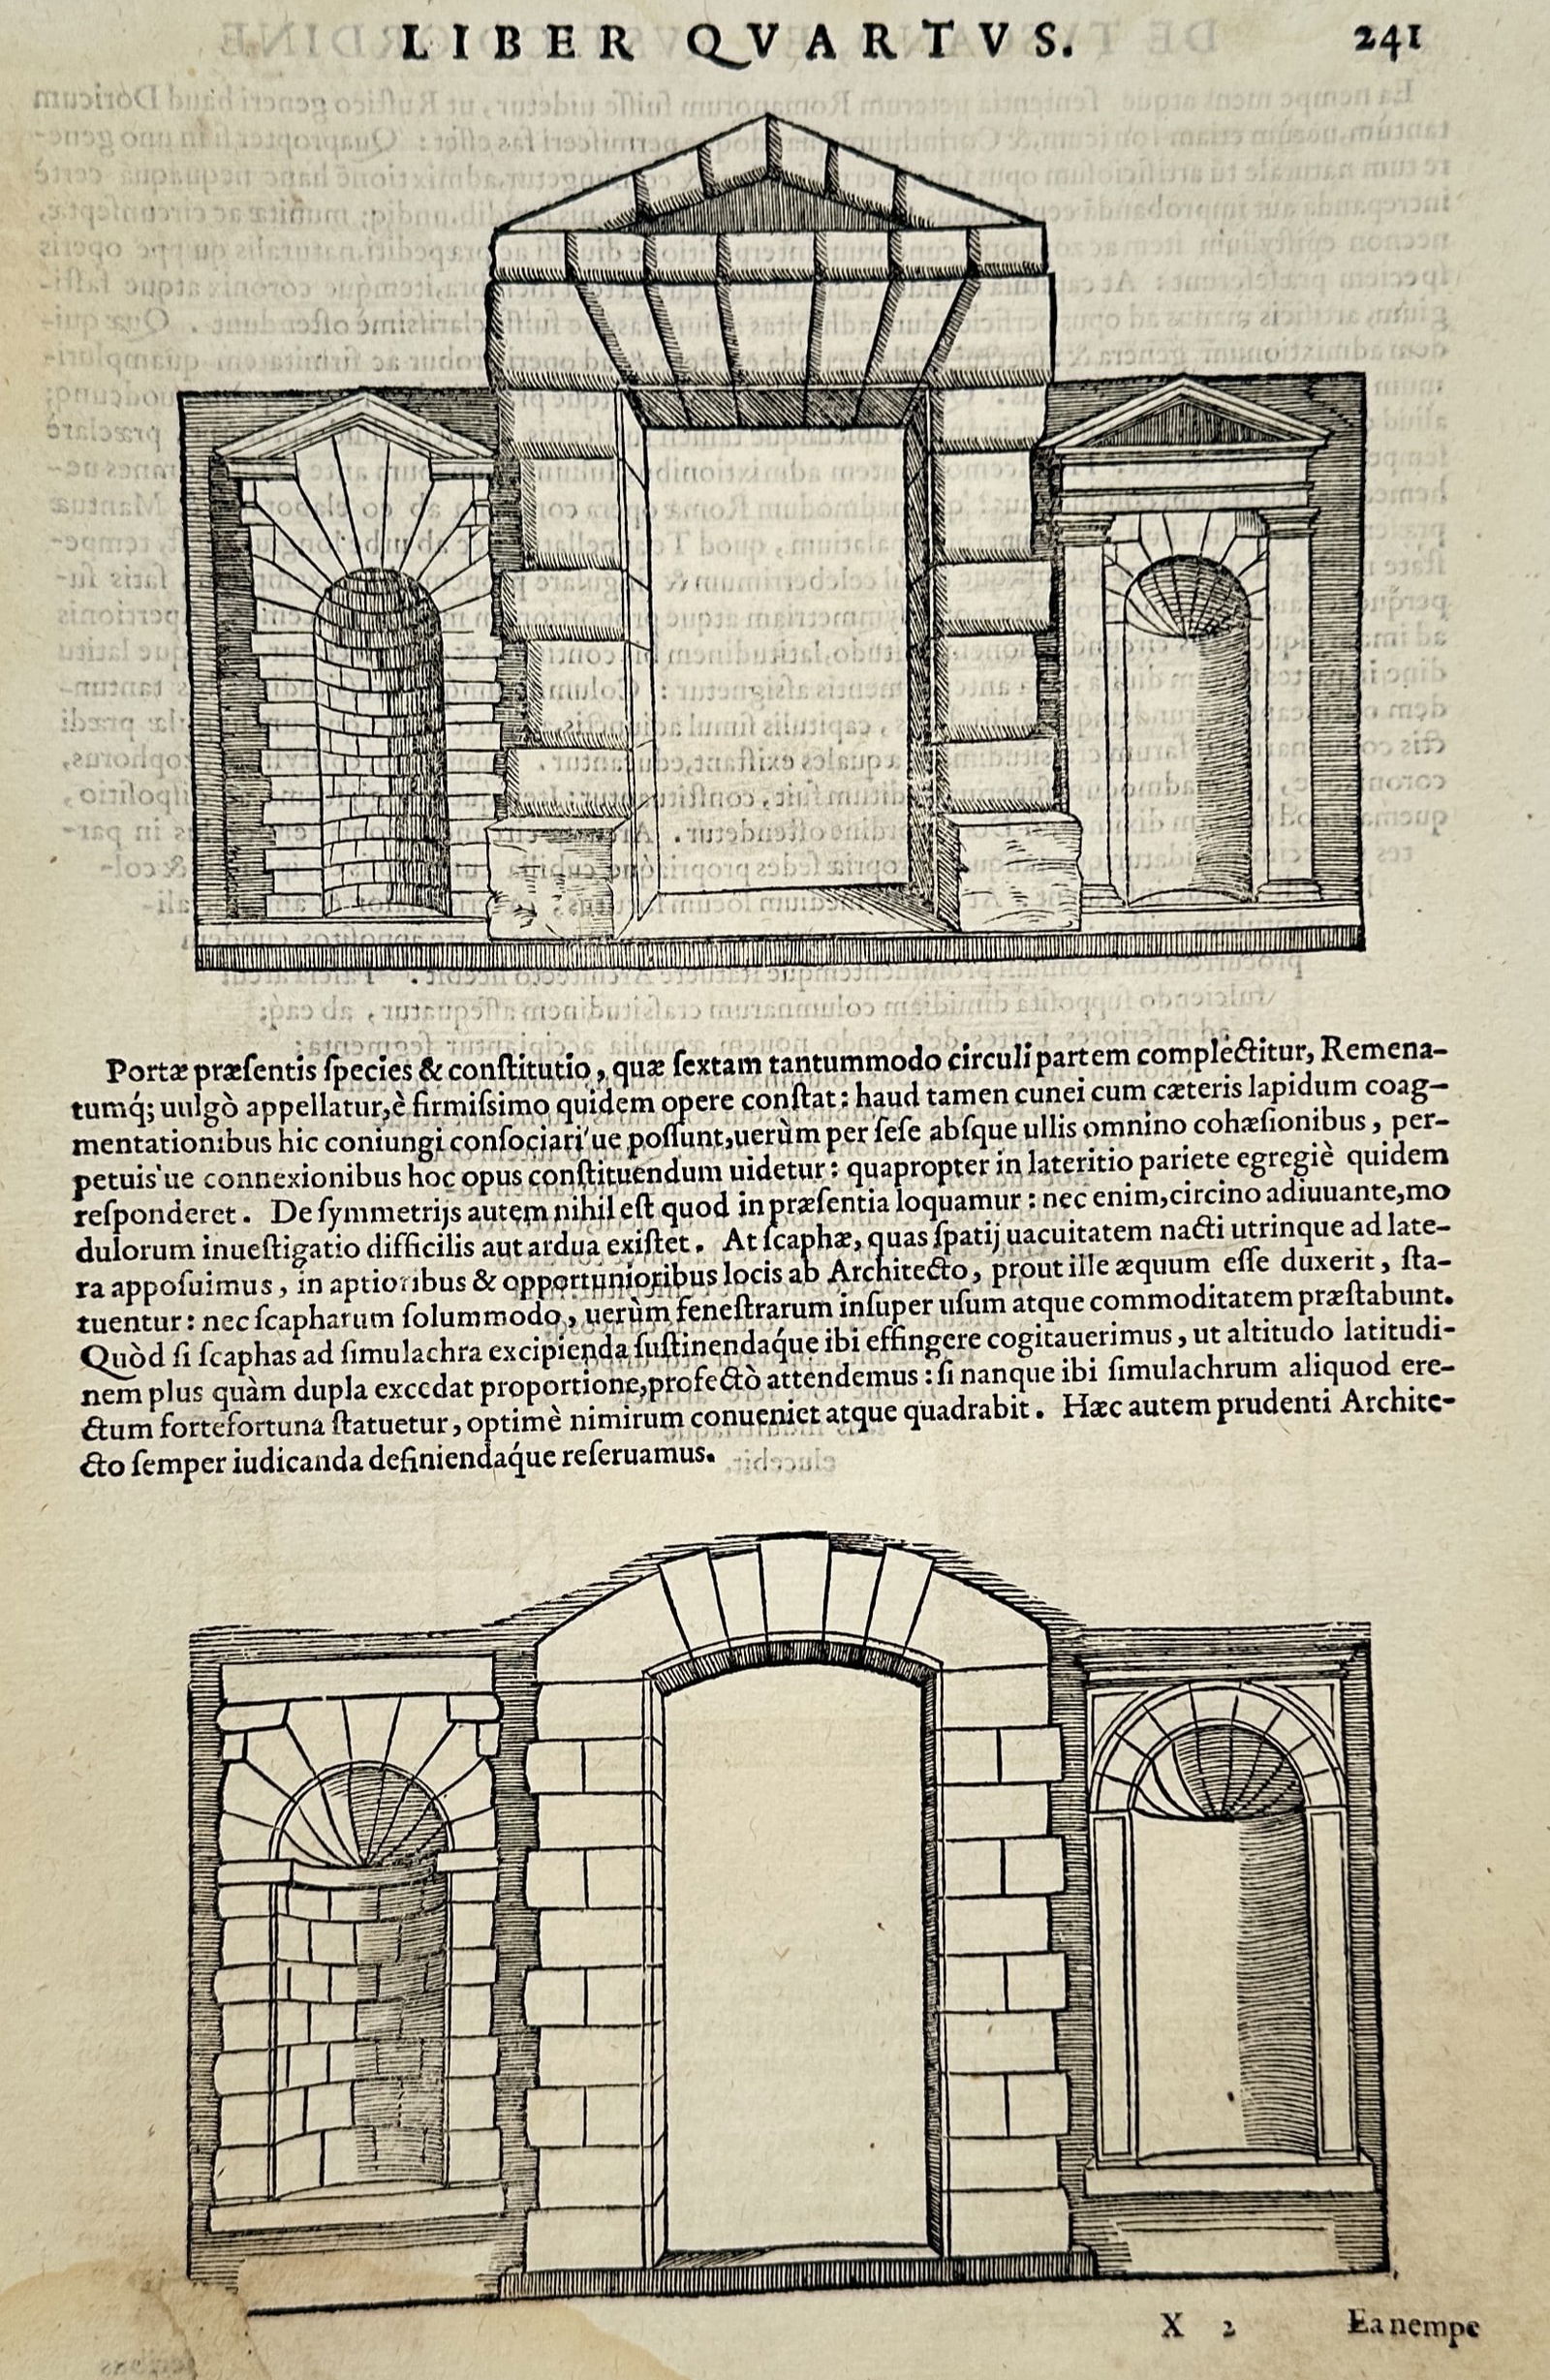 LIBER QVARTVS. 241
Portæ præſentis ſpecies & conſtitutio, quæ ſextam tantummodo circuli partem complectitur, Remena-
tumq́; uulgò appellatur, è firmiſsimo quidem opere conſtat: haud tamen cunei cum cæteris lapidum coag-
mentationibus hic coniungi conſociari'ue poſſunt, uerùm per ſeſe abſque ullis omnino cohæſionibus, per-
petuis'ue connexionibus hoc opus conſtituendum uidetur: quapropter in lateritio pariete egregiè quidem
reſponderet. De ſymmetrijs autem nihil eſt quod in præſentia loquamur: nec enim, circino adiuuante, mo
dulorum inueſtigatio difficilis aut ardua exiſtet. At ſcaphæ, quas ſpatij uacuitatem nacti utrinque ad late-
ra appoſuimus, in aptioribus & opportunioribus locis ab Architecto, prout ille æquum eſſe duxerit, ſta-
tuentur: nec ſcapharum ſolummodo, uerùm feneſtrarum inſuper uſum atque commoditatem præſtabunt.
Quòd ſi ſcaphas ad ſimulachra excipienda ſuſtinendaq́ue ibi effingere cogitauerimus, ut altitudo latitudi-
nem plus quàm dupla excedat proportione, profectò attendemus: ſi nanque ibi ſimulachrum aliquod ere-
ctum fortefortuna ſtatuetur, optimè nimirum conueniet atque quadrabit. Hæc autem prudenti Archite-
cto ſemper iudicanda definiendaq́ue reſeruamus.
X 2 Ea nempe